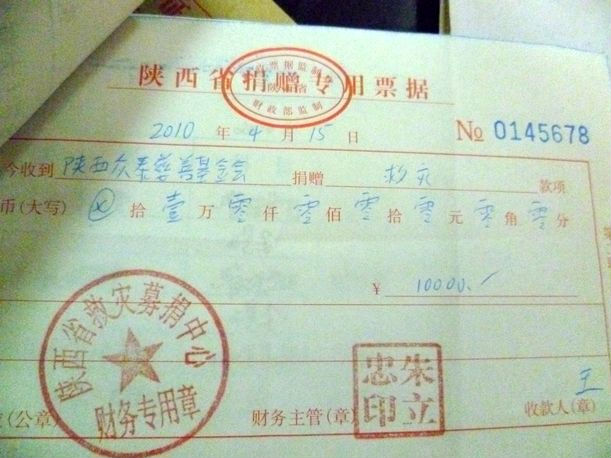 陕西省捐赠专用票据
陕西省
财政部监制
2010 年 4 月 15 日 № 0145678
今收到 陕西众泰慈善基金会 捐赠 救灾 款项
币(大写) ⊗ 拾 壹 万 零 仟 零 佰 零 拾 零 元 零 角 零 分
¥ 10000.
陕西省救灾募捐中心
财务专用章
朱立忠印
(公章) 财务主管(章) 收款人(章) 王